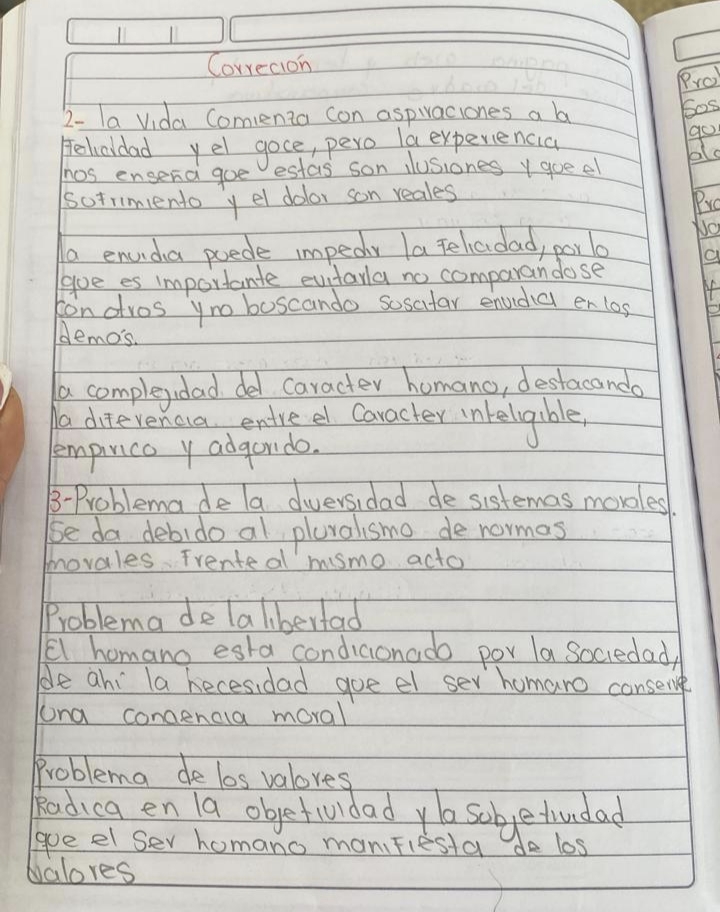 Correción
2- la vida comienza con aspiraciones a la
felicidad y el goce, pero la experiencia
nos enseña que estas son ilusiones y que el
sufrimiento y el dolor son reales
la envidia puede impedir la felicidad, por lo
que es importante evitarla no comparandose
con otros y no buscando suscitar envidia en los
demás.
la complejidad del caracter humano, destacando
la diferencia entre el caracter inteligible,
empirico y adquirido.
3- Problema de la diversidad de sistemas morales.
Se da debido al pluralismo de normas
morales frente al mismo acto
Problema de la libertad
El humano esta condicionado por la sociedad,
de ahí la necesidad que el ser humano conserve
una conciencia moral
Problema de los valores
Radica en la objetividad y la subjetividad
que el ser humano manifiesta de los
valores